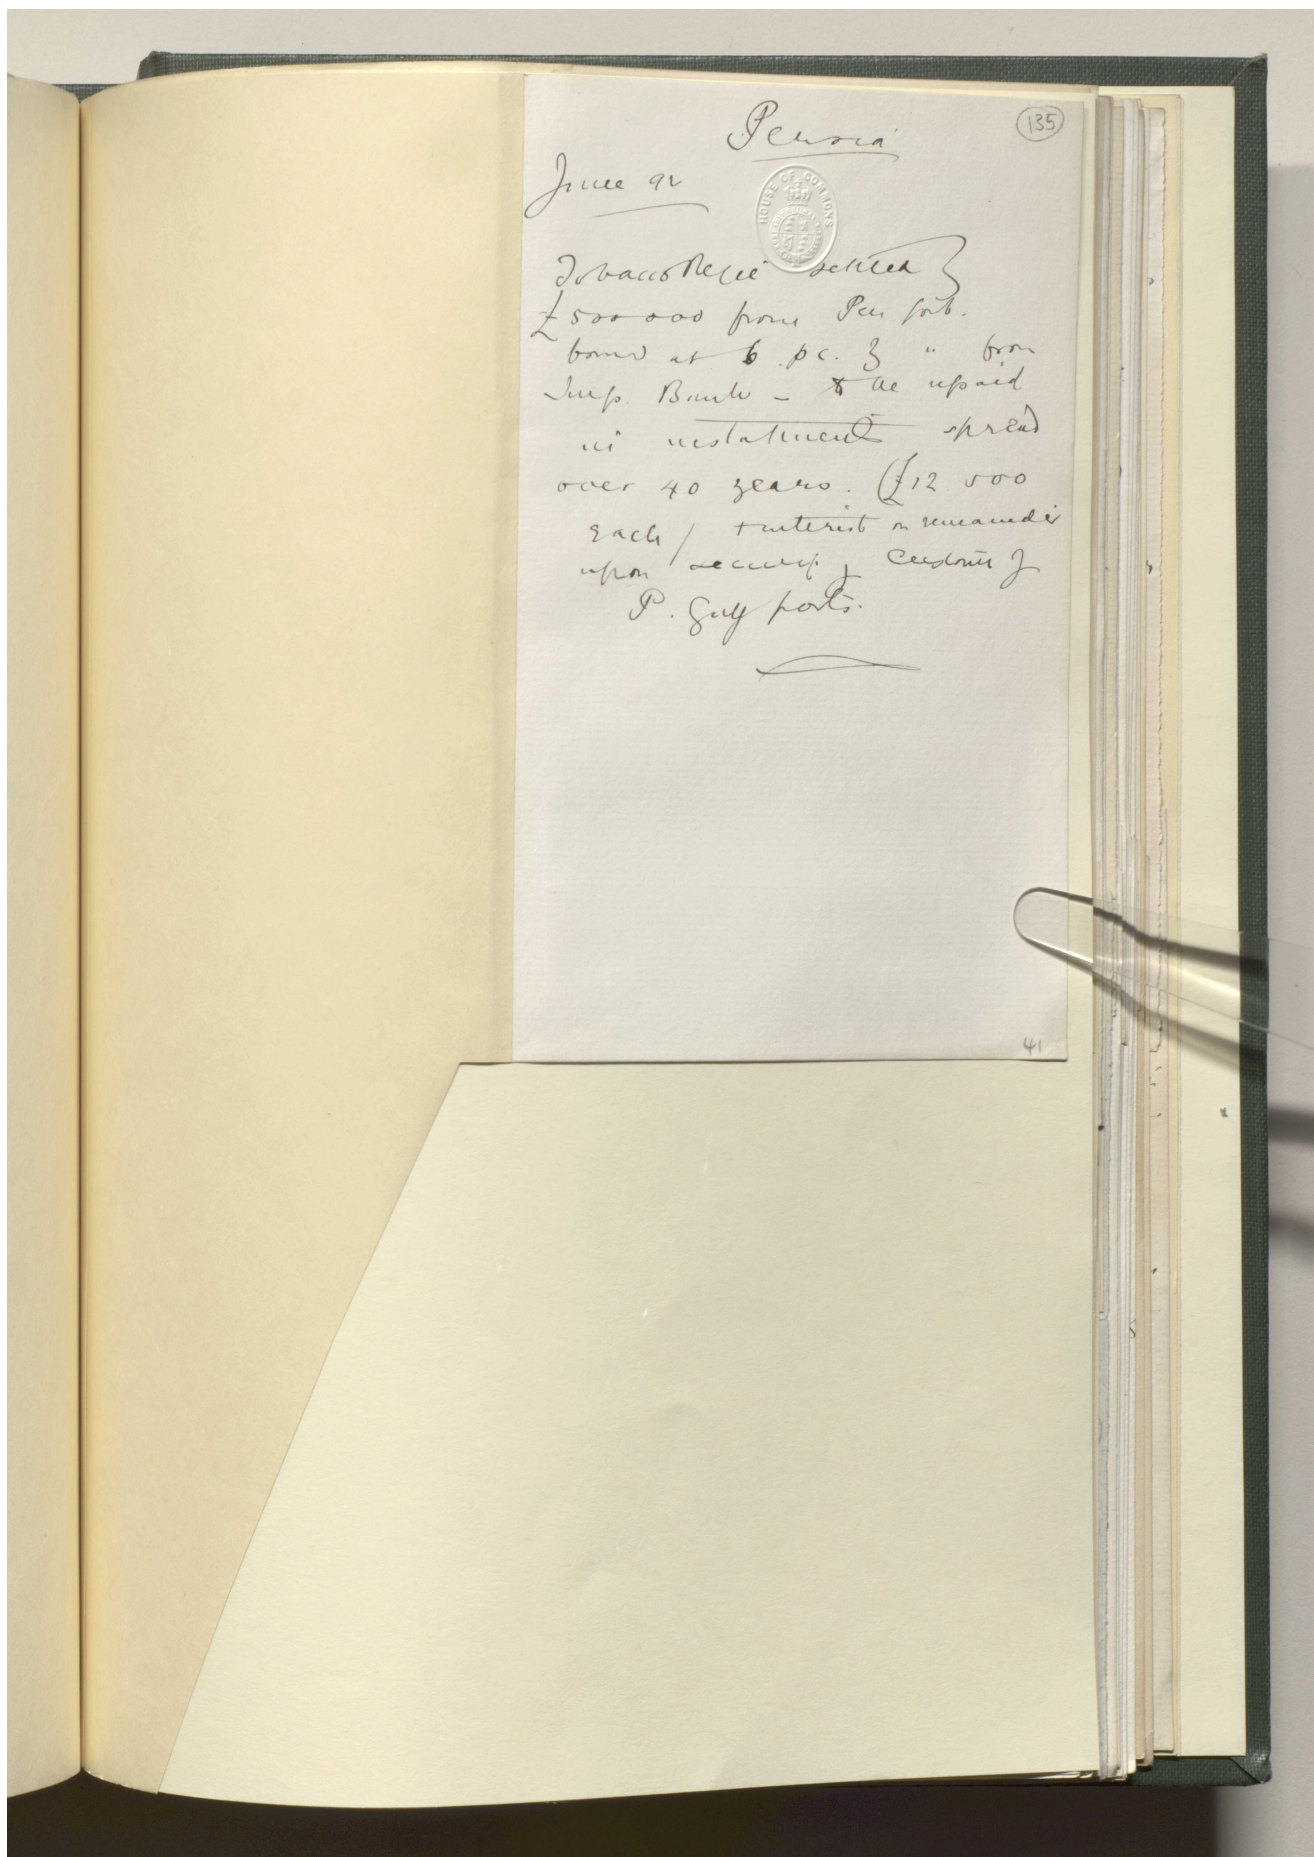 135
Persia
June 92
HOUSE OF COMMONS
Tobacco Regie settled
£500 000 from Per Govt.
at 6 p.c. " from
Imp. Bank - to be repaid
in instalments spread
over 40 years. (£12 500
each) + interest on remainder
upon security of Customs of
P. Gulf ports.
41